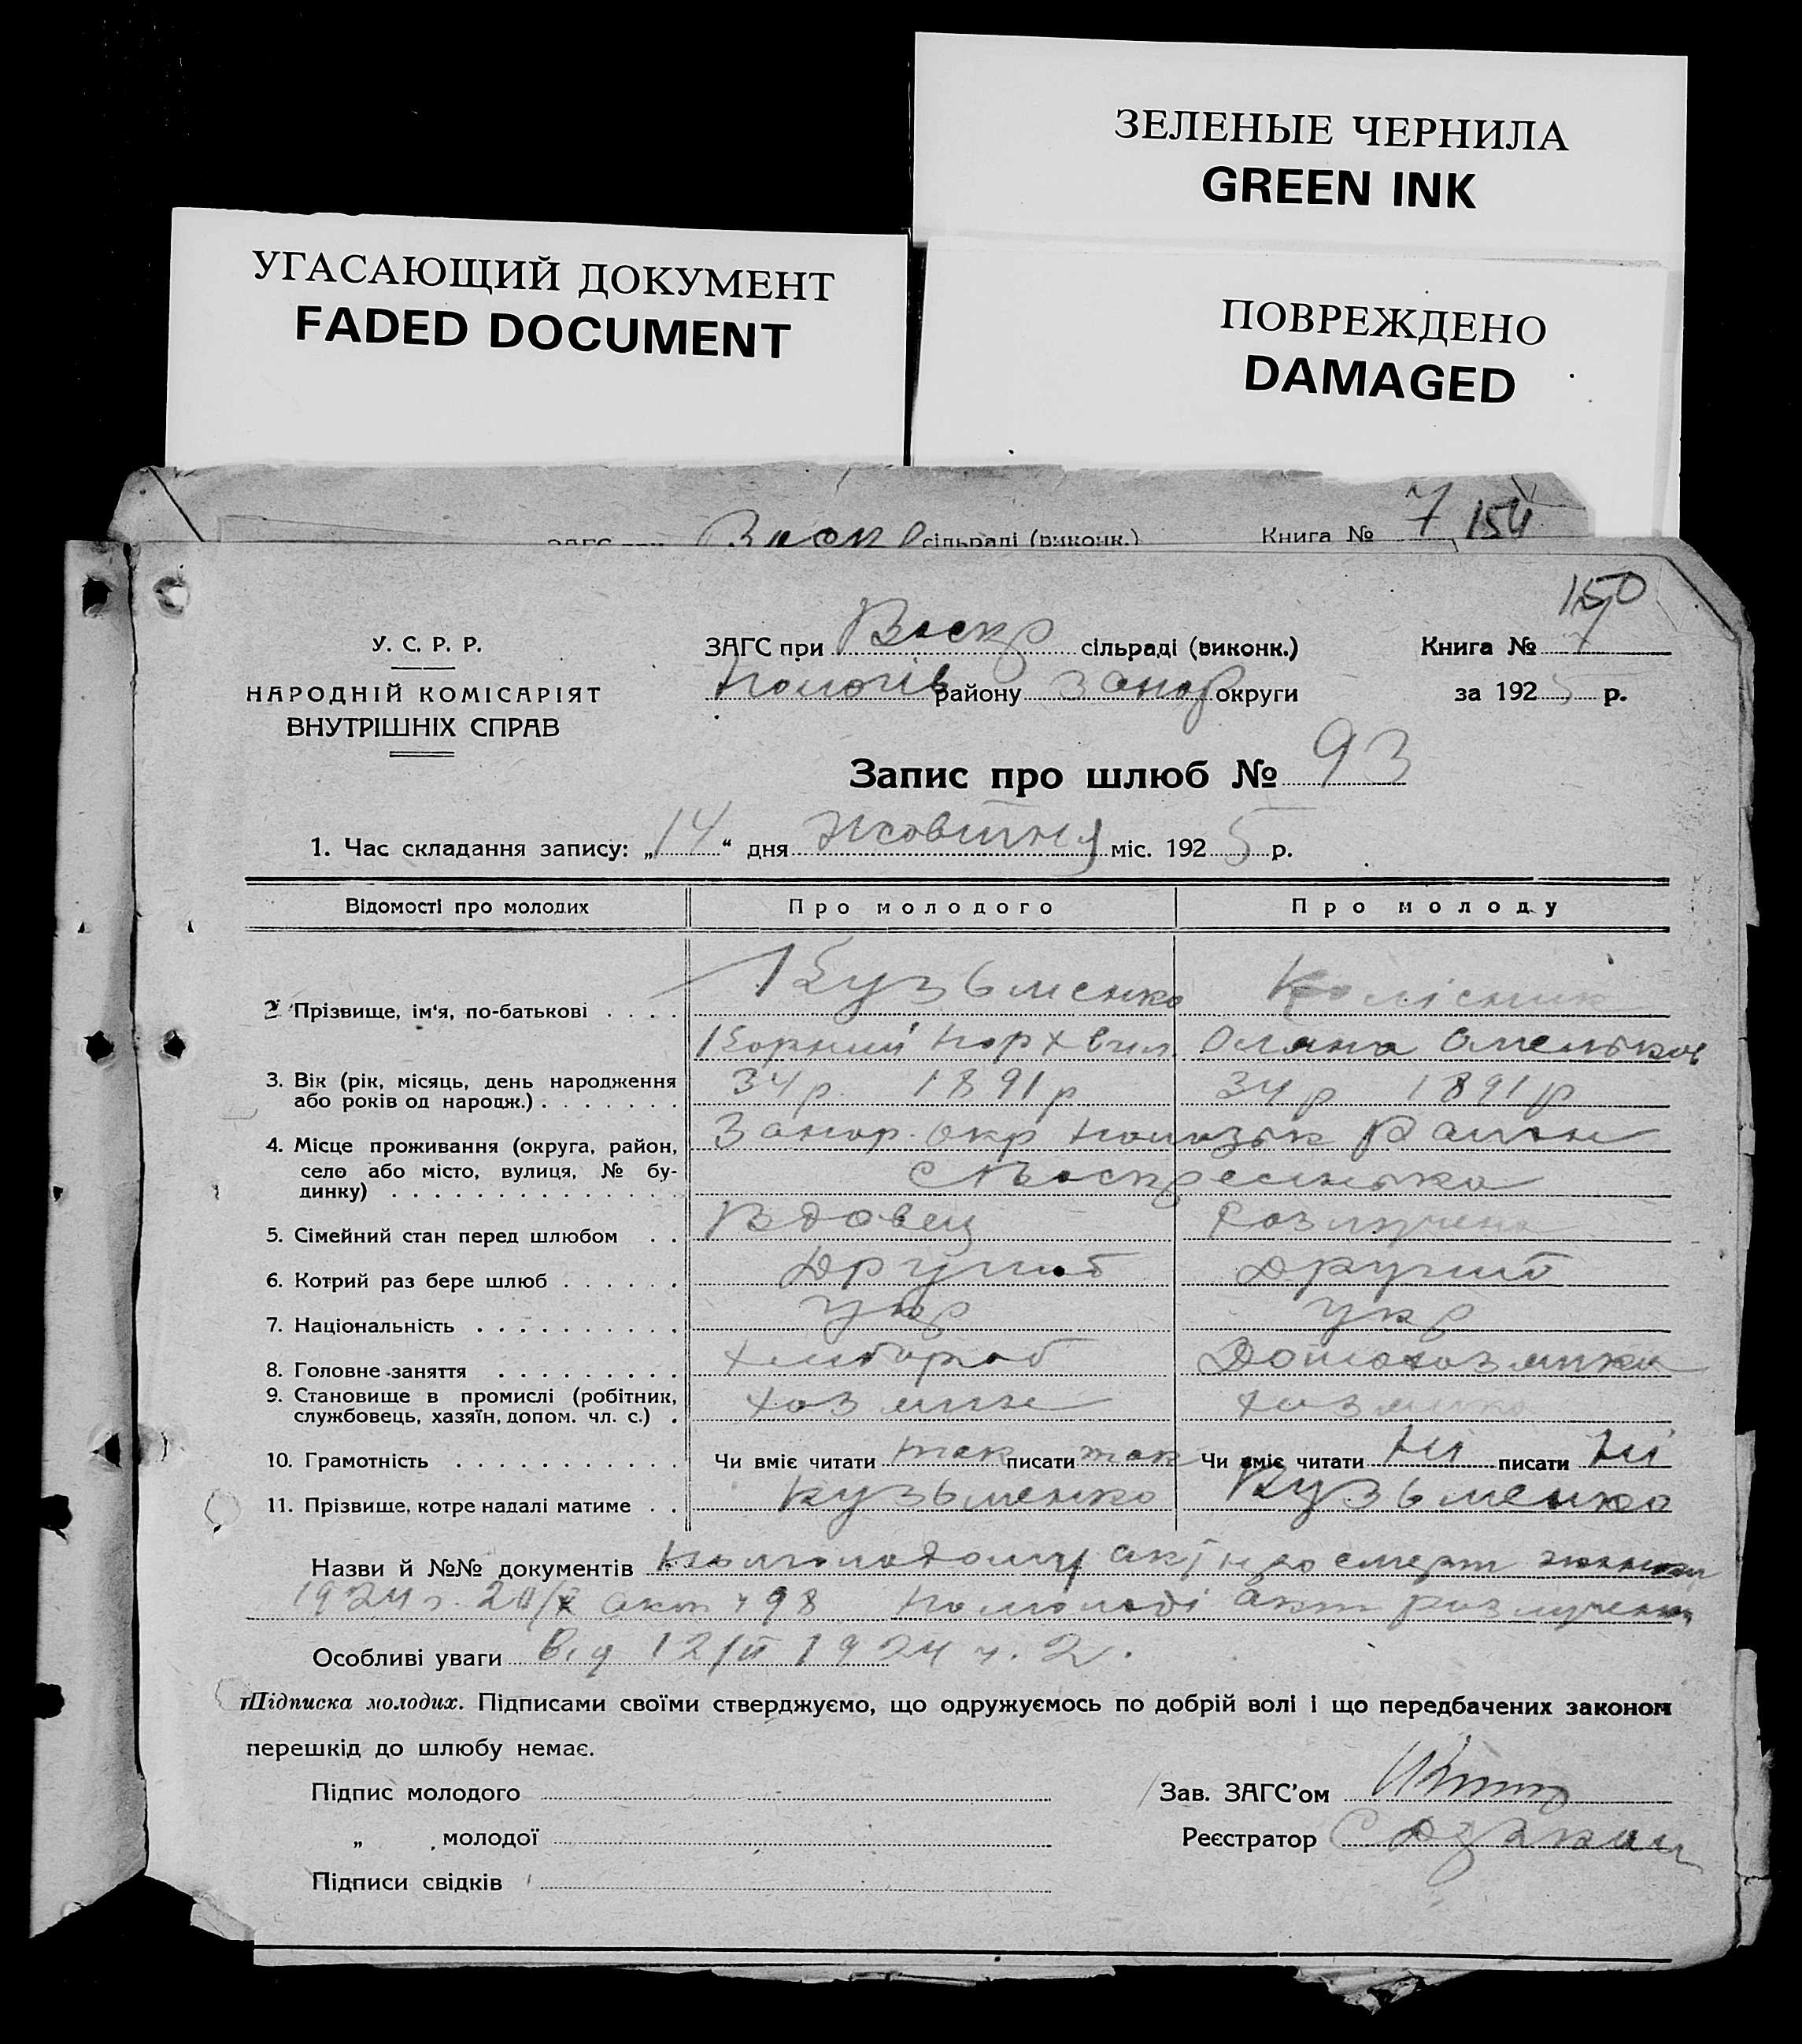 ЗЕЛЕНЫЕ ЧЕРНИЛА
GREEN INK
УГАСАЮЩИЙ ДОКУМЕНТ
FADED DOCUMENT
ПОВРЕЖДЕНО
DAMAGED
сільраді (виконк.) Книга № 7 154
150
У. С. Р. Р.
НАРОДНІЙ КОМІСАРІЯТ
ВНУТРІШНІХ СПРАВ
ЗАГС при Воскр сільраді (виконк.) Книга № 7
Пологів району Запор округи за 1925 р.
Запис про шлюб № 93
1. Час складання запису: „14“ дня Жовтня міс. 1925 р.
Відомості про молодих Про молодого Про молоду
2. Прізвище, ім'я, по-батькові Кузьменко Колісник
Корний Омельков
3. Вік (рік, місяць, день народження або років од народж.) 34 р. 1891 р 34 р 1891 р
4. Місце проживання (округа, район, село або місто, вулиця, № будинку) Запор. окр
с Воскресенька
5. Сімейний стан перед шлюбом Вдовец Розлучена
6. Котрий раз бере шлюб Другий Другий
7. Національність укр укр
8. Головне заняття хлібороб
9. Становище в промислі (робітник, службовець, хазяїн, допом. чл. с.)
10. Грамотність Чи вміє читати так писати так Чи вміє читати Ні писати Ні
11. Прізвище, котре надалі матиме Кузьменко Кузьменко
Назви й №№ документів По молодому акт про смерт
1924 р. акт 98 По молоді акт розлучення
Особливі уваги Від 12/II 1924 ч. 2.
Підписка молодих. Підписами своїми стверджуємо, що одружуємось по добрій волі і що передбачених законом
перешкід до шлюбу немає.
Підпис молодого Зав. ЗАГС'ом
„ молодої Реєстратор
Підписи свідків